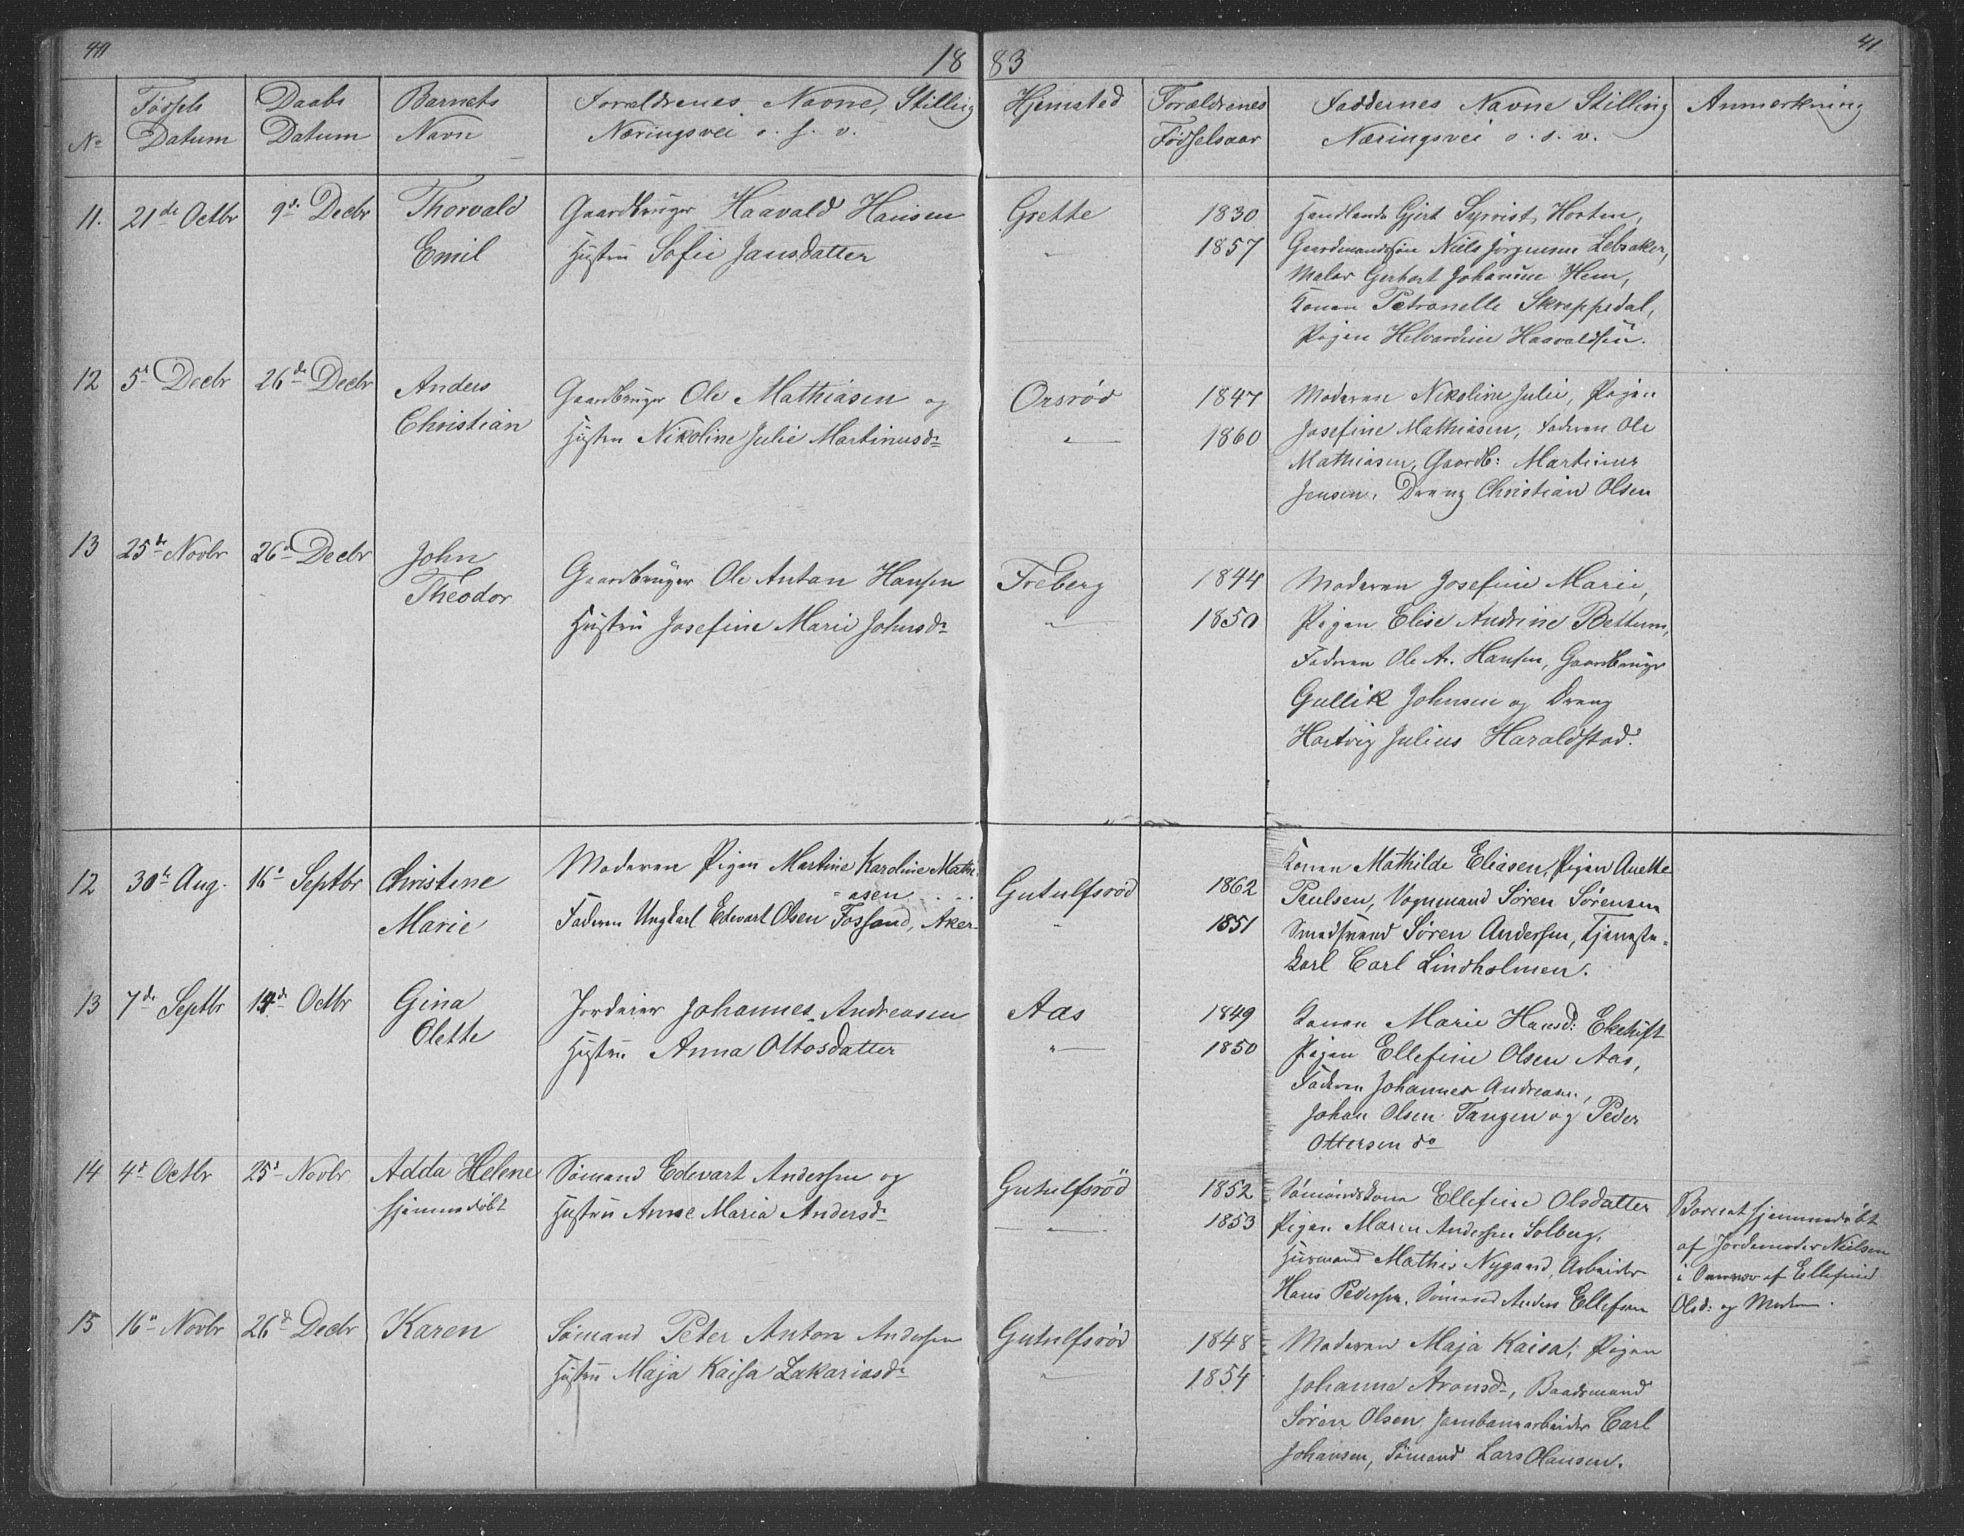 41 1883 41
No Fødsels Datum Daabs Datum Barnets Navn Forældrenes Navne, Stilling Næringsvei o. s. v. Hjemsted Forældrenes Fødselsaar Faddernes Navne Stilling Næringsvei o. s. v. Anmerkning
11. 21de Octbr 9de Decbr Thorvald Gaardbruger Haavald Hansen Grette 1830 Handlende Gjert Horten,
Emil Hustru Sofie Jansdatter " 1857 Gaardmandssøn Niels Jørgensen Lebsaker,
Maler Gerhart Johannes Hem,
Konen Petronelle Skreppedal,
Pigen Helvardine Haavaldsen.
12 5te Decbr 26de Decbr Anders Gaardbruger Ole Mathiasen og Orsrød 1847 Moderen Nikoline Julie, Pigen
Christian Hustru Nikoline Julie Martinusdr " 1860 Josefine Mathiasen, Faderen Ole
Mathiasen, Gaardb: Martinus
Jensen, Dreng Christian Olsen
13 25de Novbr 26de Decbr John Gaardbruger Ole Anton Hansen Freberg 1844 Moderen Josefine Marie,
Theodor Hustru Josefine Marie Johnsdr " 1850 Pigen Elise Andrine Bettum,
Faderen Ole A. Hansen, Gaardbruger
Gullik Johnsen og Dreng
Hartvig Julius Haraldstad.
12 30te Aug. 16de Septbr Christine Moderen Pigen Martine Karoline Mathi- Gutulfsrød 1862 Konen Mathilde Eliasen, Pigen Anette
=asen Paulsen, Vognmand Søren Sørensen
Marie Faderen Ungkarl Edevart Olsen Fossand, Aker " 1851 Smedsvend Søren Andersen, Tjeneste-
karl Carl Lindholmen.
13 7de Septbr 14de Octbr Gina Jordeier Johannes Andreasen Aas 1849 Konen Marie Hansd: Ekehift
Olette Hustru Anna Ottosdatter " 1850 Pigen Ellefine Olsen Aas,
Faderen Johannes Andreasen,
Johan Olsen Tangen og Peder
Ottersen do
14 4de Octbr 25de Novbr Adda Helene Sømand Edevart Andersen og Gutulfsrød 1852 Sømandskone Ellefine Olsdatter Barnet hjemmedøbt
hjemmedøbt Hustru Anne Maria Andersdr " 1853 Pigen Maren Andersen Solberg, af Jordemoder Nielsen
Husmand Mathis Nygaard, Arbeider i Overvær af Ellefine
Hans Pedersen, Sømand Anders Ellefsen Olsd: og
15 16de Novbr 26de Decbr Karen Sømand Peter Anton Andersen Gutulfsrød 1848 Moderen Maja Kaisa, Pigen
Hustru Maja Kaisa Zakariasdr " 1854 Johanne Aronsdr, Baadsmand
Søren Olsen, Jernbanearbeider Carl
Johansen, Sømand Lars Hansen.